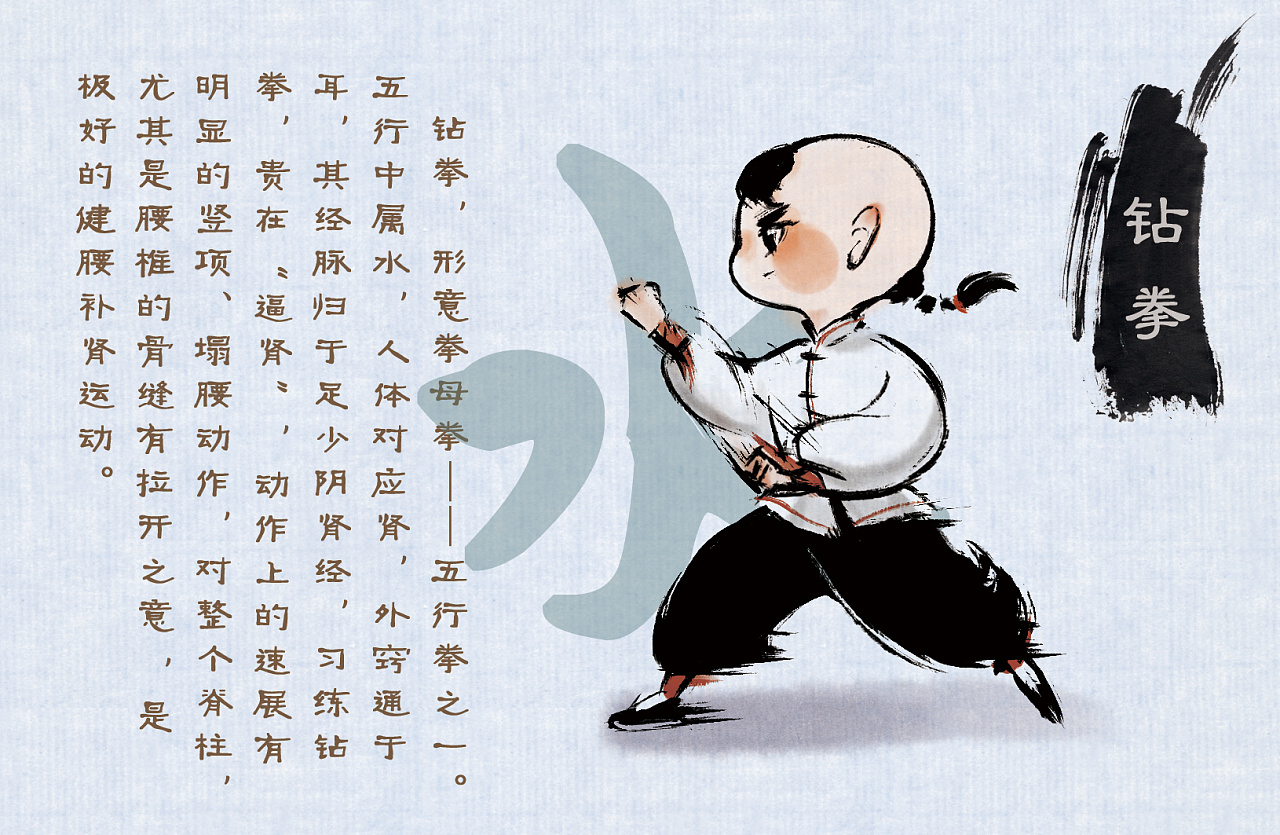 钻拳
钻拳，形意拳母拳——五行拳之一。
五行中属水，人体对应肾，外窍通于
耳，其经脉归于足少阴肾经，习练钻
拳，贵在〝逼肾〞，动作上的速展有
明显的竖项、塌腰动作，对整个脊柱，
尤其是腰椎的骨缝有拉开之意，是
极好的健腰补肾运动。
水